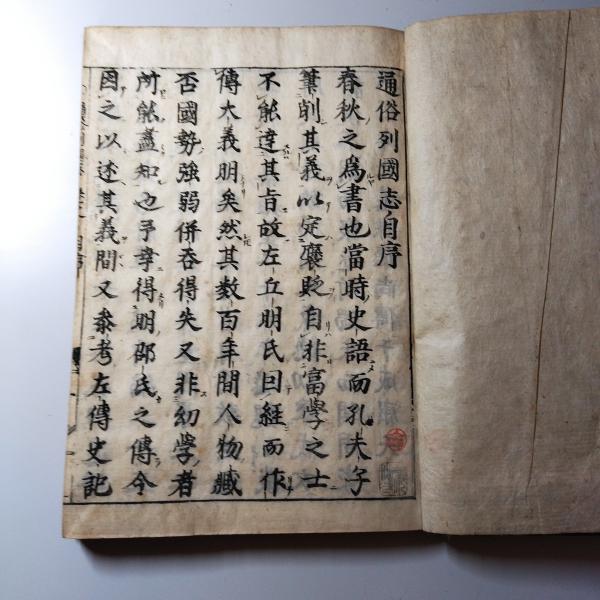 通俗列國志自序
春秋之爲書也當時史語而孔夫子
筆削其義以定襃貶自非富學之士
不能達其旨故左丘明氏因經而作
傳大義明矣然其數百年間人物臧
否國勢強弱併吞得失又非幼學者
所能盡知也予幸得明邵氏之傳今
因之以述其義間又參考左傳史記